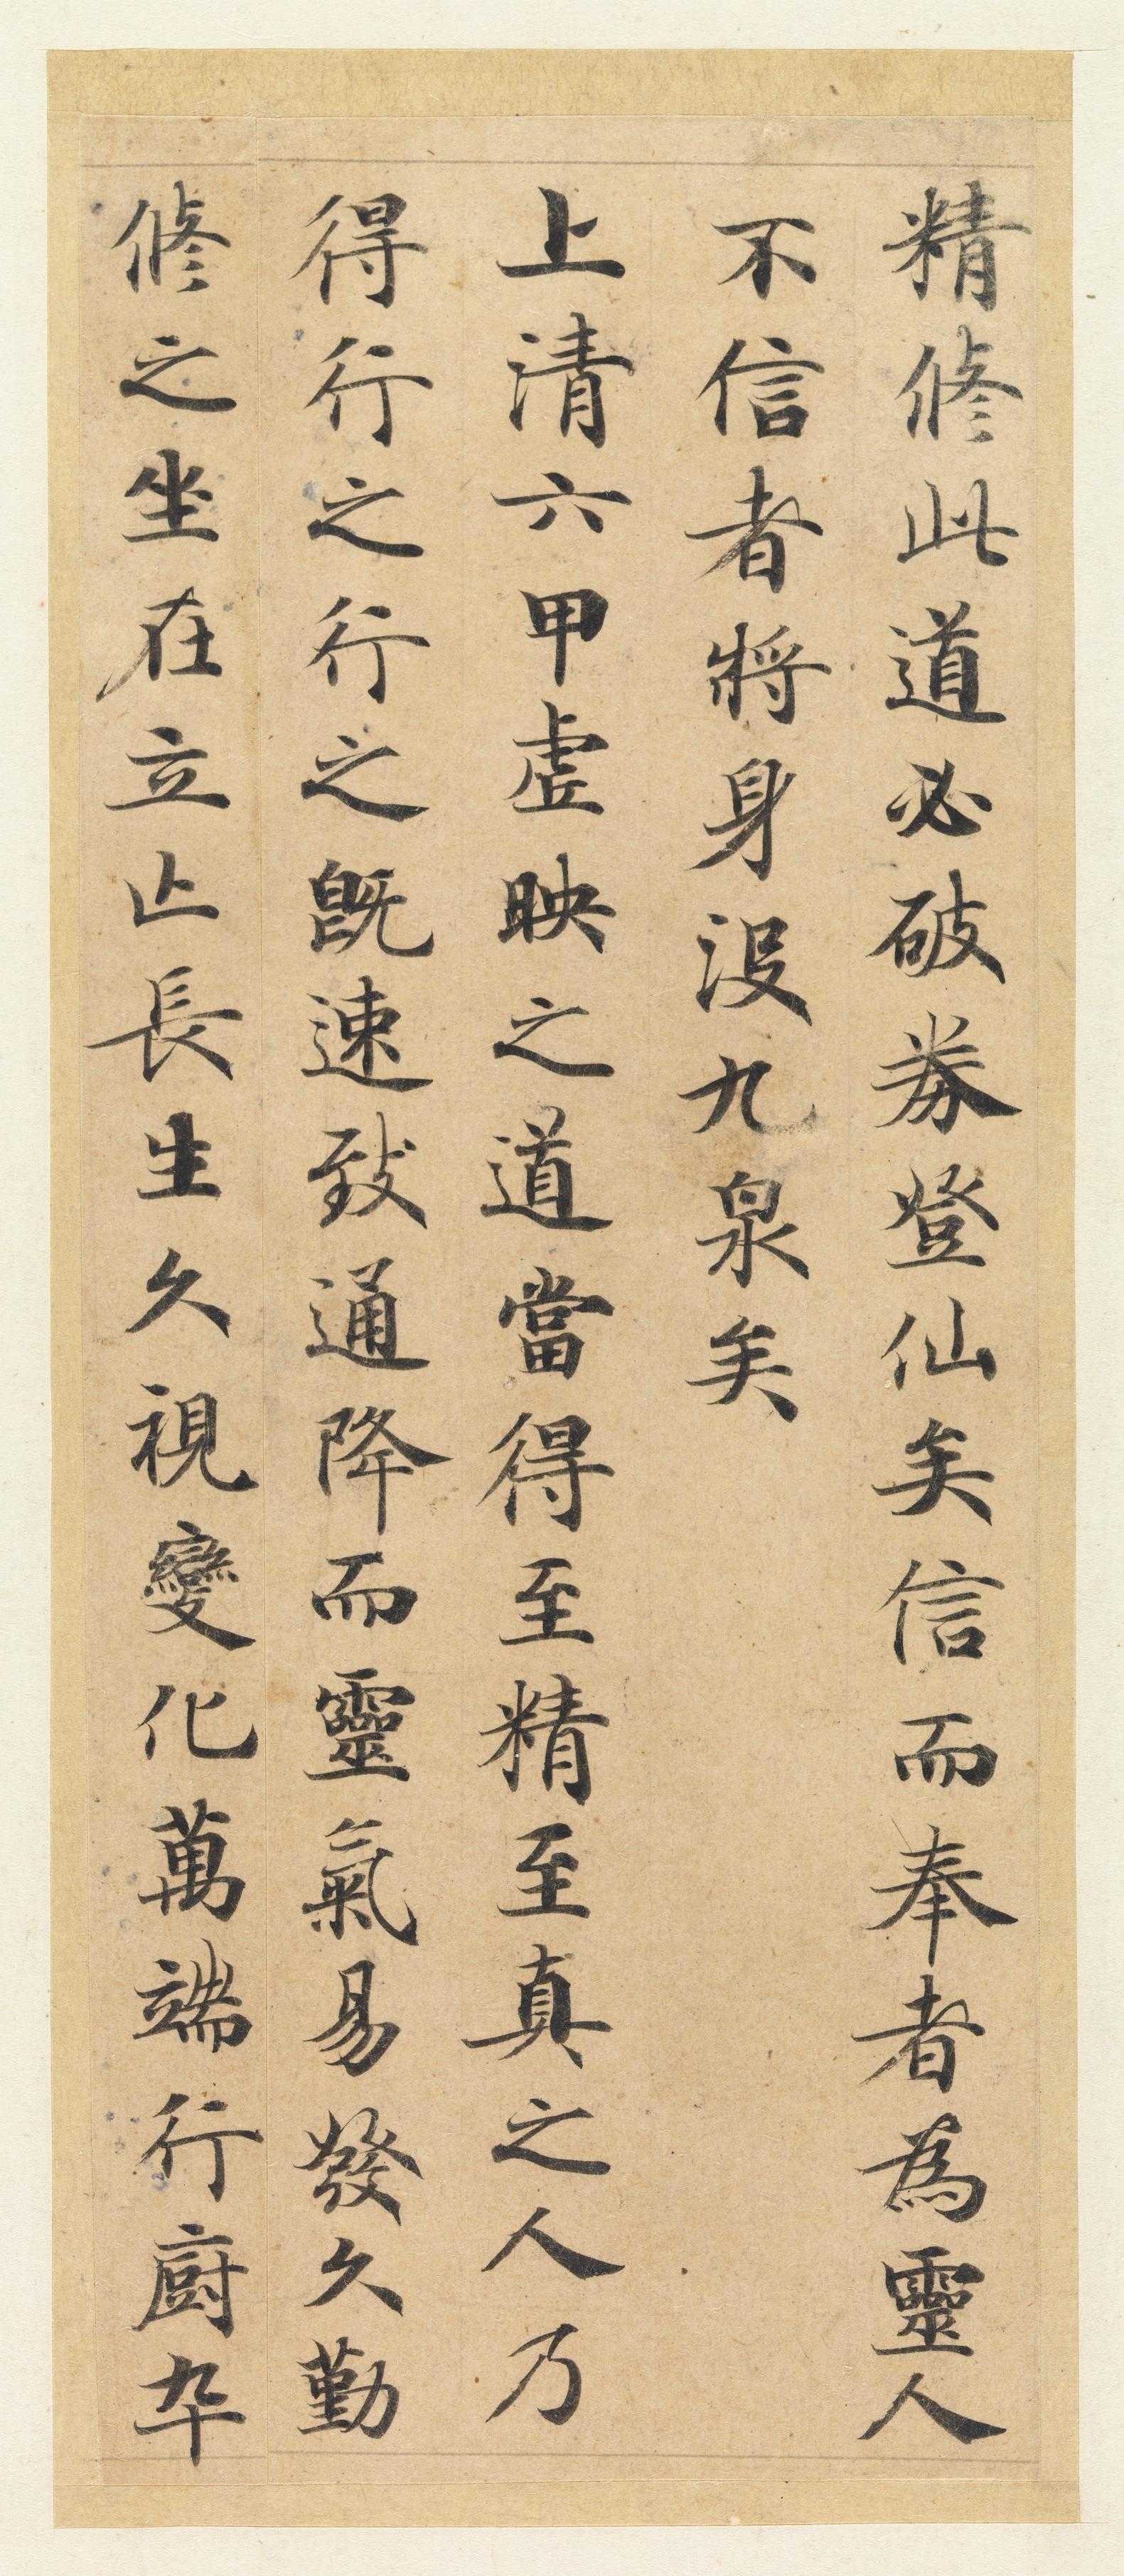 精修此道必破券登仙矣信而奉者為靈人
不信者將身沒九泉矣
上清六甲虛映之道當得至精至真之人乃
得行之行之既速致通降而靈氣易發久勤
修之坐在立亡長生久視變化萬端行廚卒